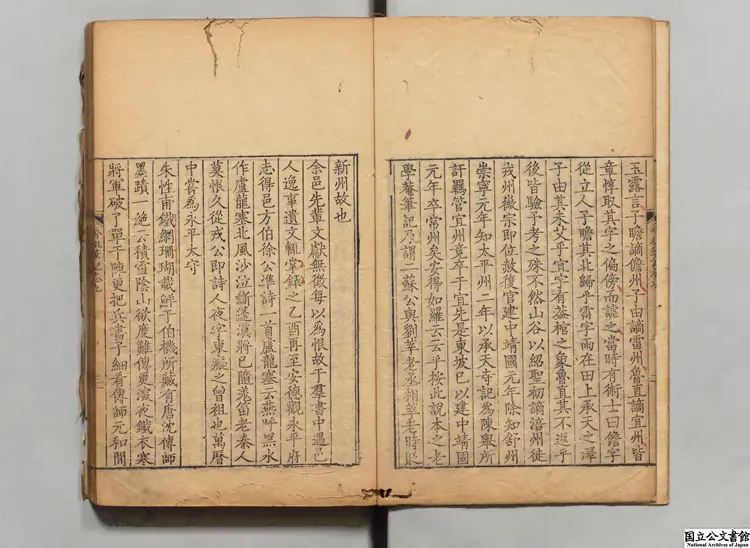 玉露言子瞻謫儋州子由謫雷州魯直謫宜州皆
章惇取其字之偏傍而謔之當時有術士曰儋字
從立人子瞻其北歸乎雷字雨在田上承天之澤
子由其未艾乎宜字有蓋棺之象魯直其不返乎
後皆驗予考之殊不然山谷以紹聖初謫涪州徙
戎州徽宗即位赦復官建中靖國元年除知舒州
崇寧元年知太平州二年以承天寺記為陳舉所
訐羈管宜州竟卒于宜先是東坡已以建中靖國
元年卒常州矣安得如羅云云乎按此說本之老
學菴筆記乃謂二蘇公與劉莘老丞相莘老時貶
新州故也
余邑先輩文獻無徵每以為恨故于羣書中遇邑
人逸事遺文輒掌錄之乙酉再至安德觀永平府
志得邑方伯徐公準詩一首盧龍塞云燕呼黑水
作盧龍塞北風沙泣斷蓬漢將已隨羗笛老秦人
莫悵久從戎公即詩人夜字東癡之曾祖也萬曆
中嘗為永平太守
朱性甫鐵網珊瑚載鮮于伯機所藏有唐沈傳師
墨蹟一絶云積雪陰山欲度難傳更潑夜鐵衣寒
將軍破了單于陣更把兵書子細看傳師元和間
国立公文書館
National Archives of Japan